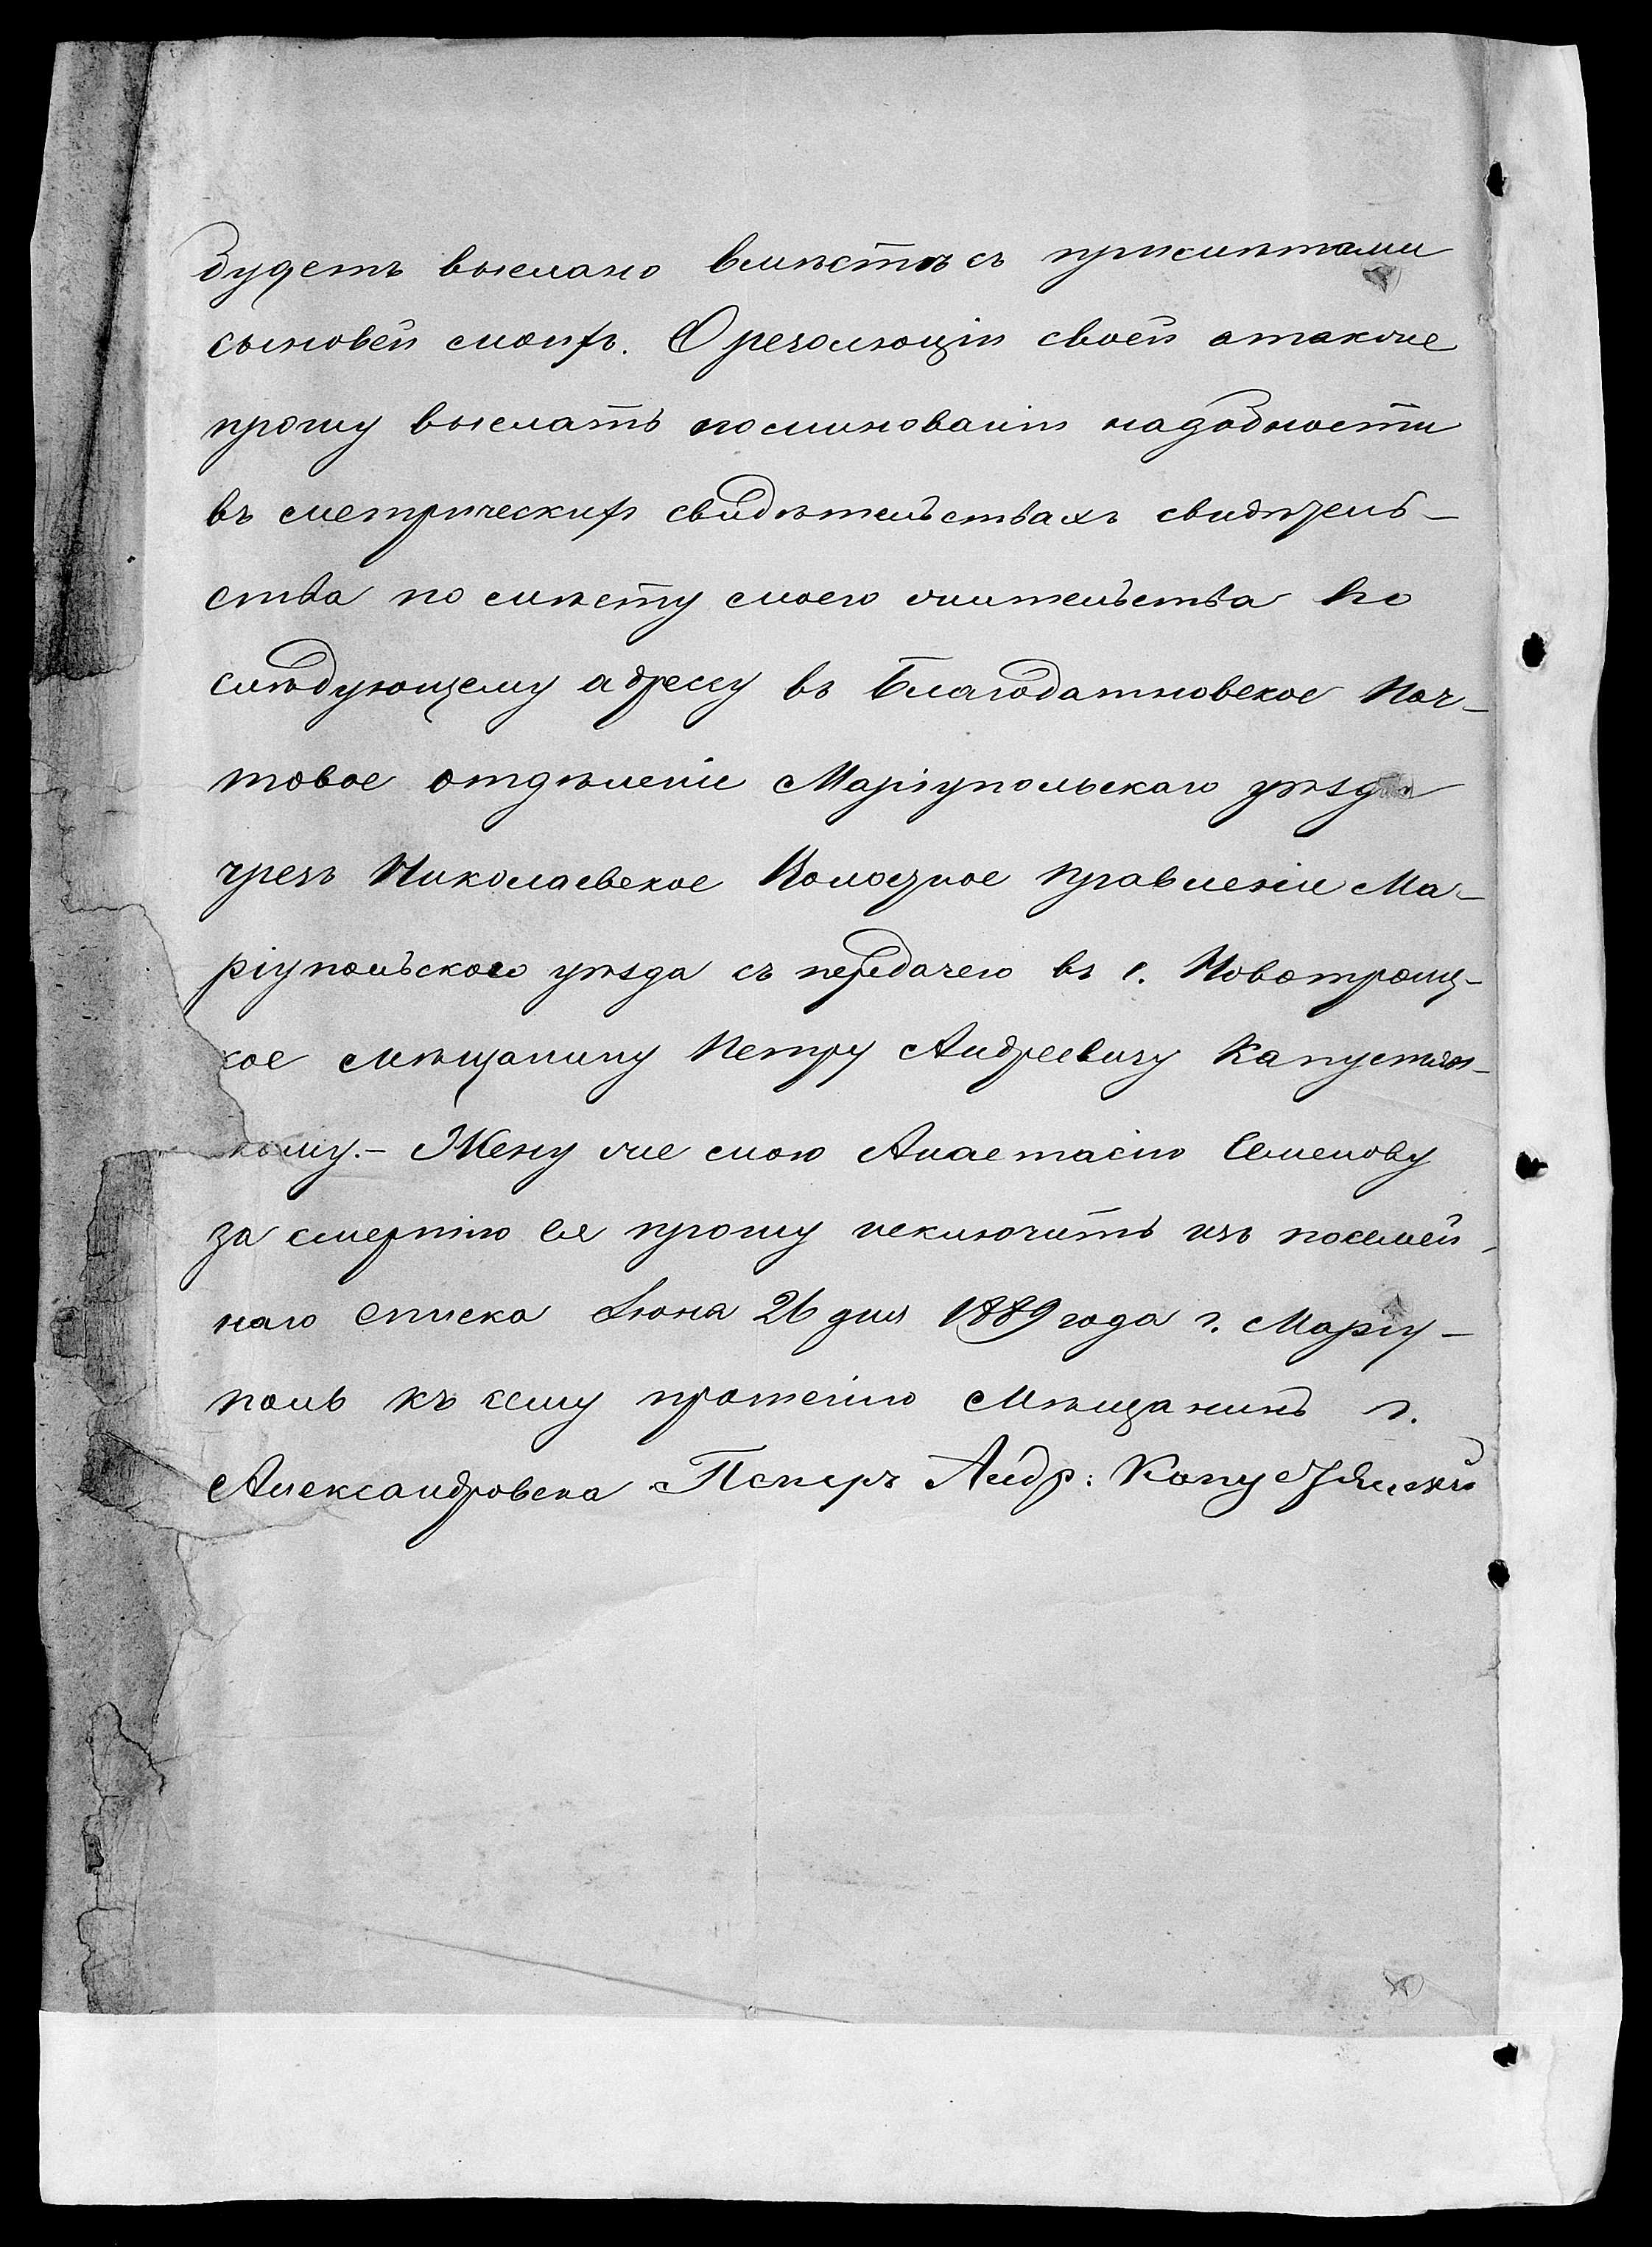 будетъ выслано вмѣстѣ съ примѣтами
сыновей моихъ. О резолюціи своей атакже
прошу выслать поминованіи надобности
въ метрическихъ свидѣтельствахъ свидѣтель-
ства по мѣсту моего жительства по
слѣдующему адрессу въ Благодатновское Поч-
товое отдѣленіе Маріупольскаго уѣзда
чрезъ Николаевское Волостное Правленіе Ма-
ріупольскаго уѣзда съ передачею въ с. Новотроиц-
кое мѣщанину Петру Андреевичу Капустян-
кому.- Жену же мою Анастасію Семенову
за смертію ея прошу исключить изъ посемей-
наго списка Іюня 26 дня 1889 года г. Маріу-
поль къ сему прошенію Мѣщанинъ г.
Александровска Петръ Андр: Капустянскій